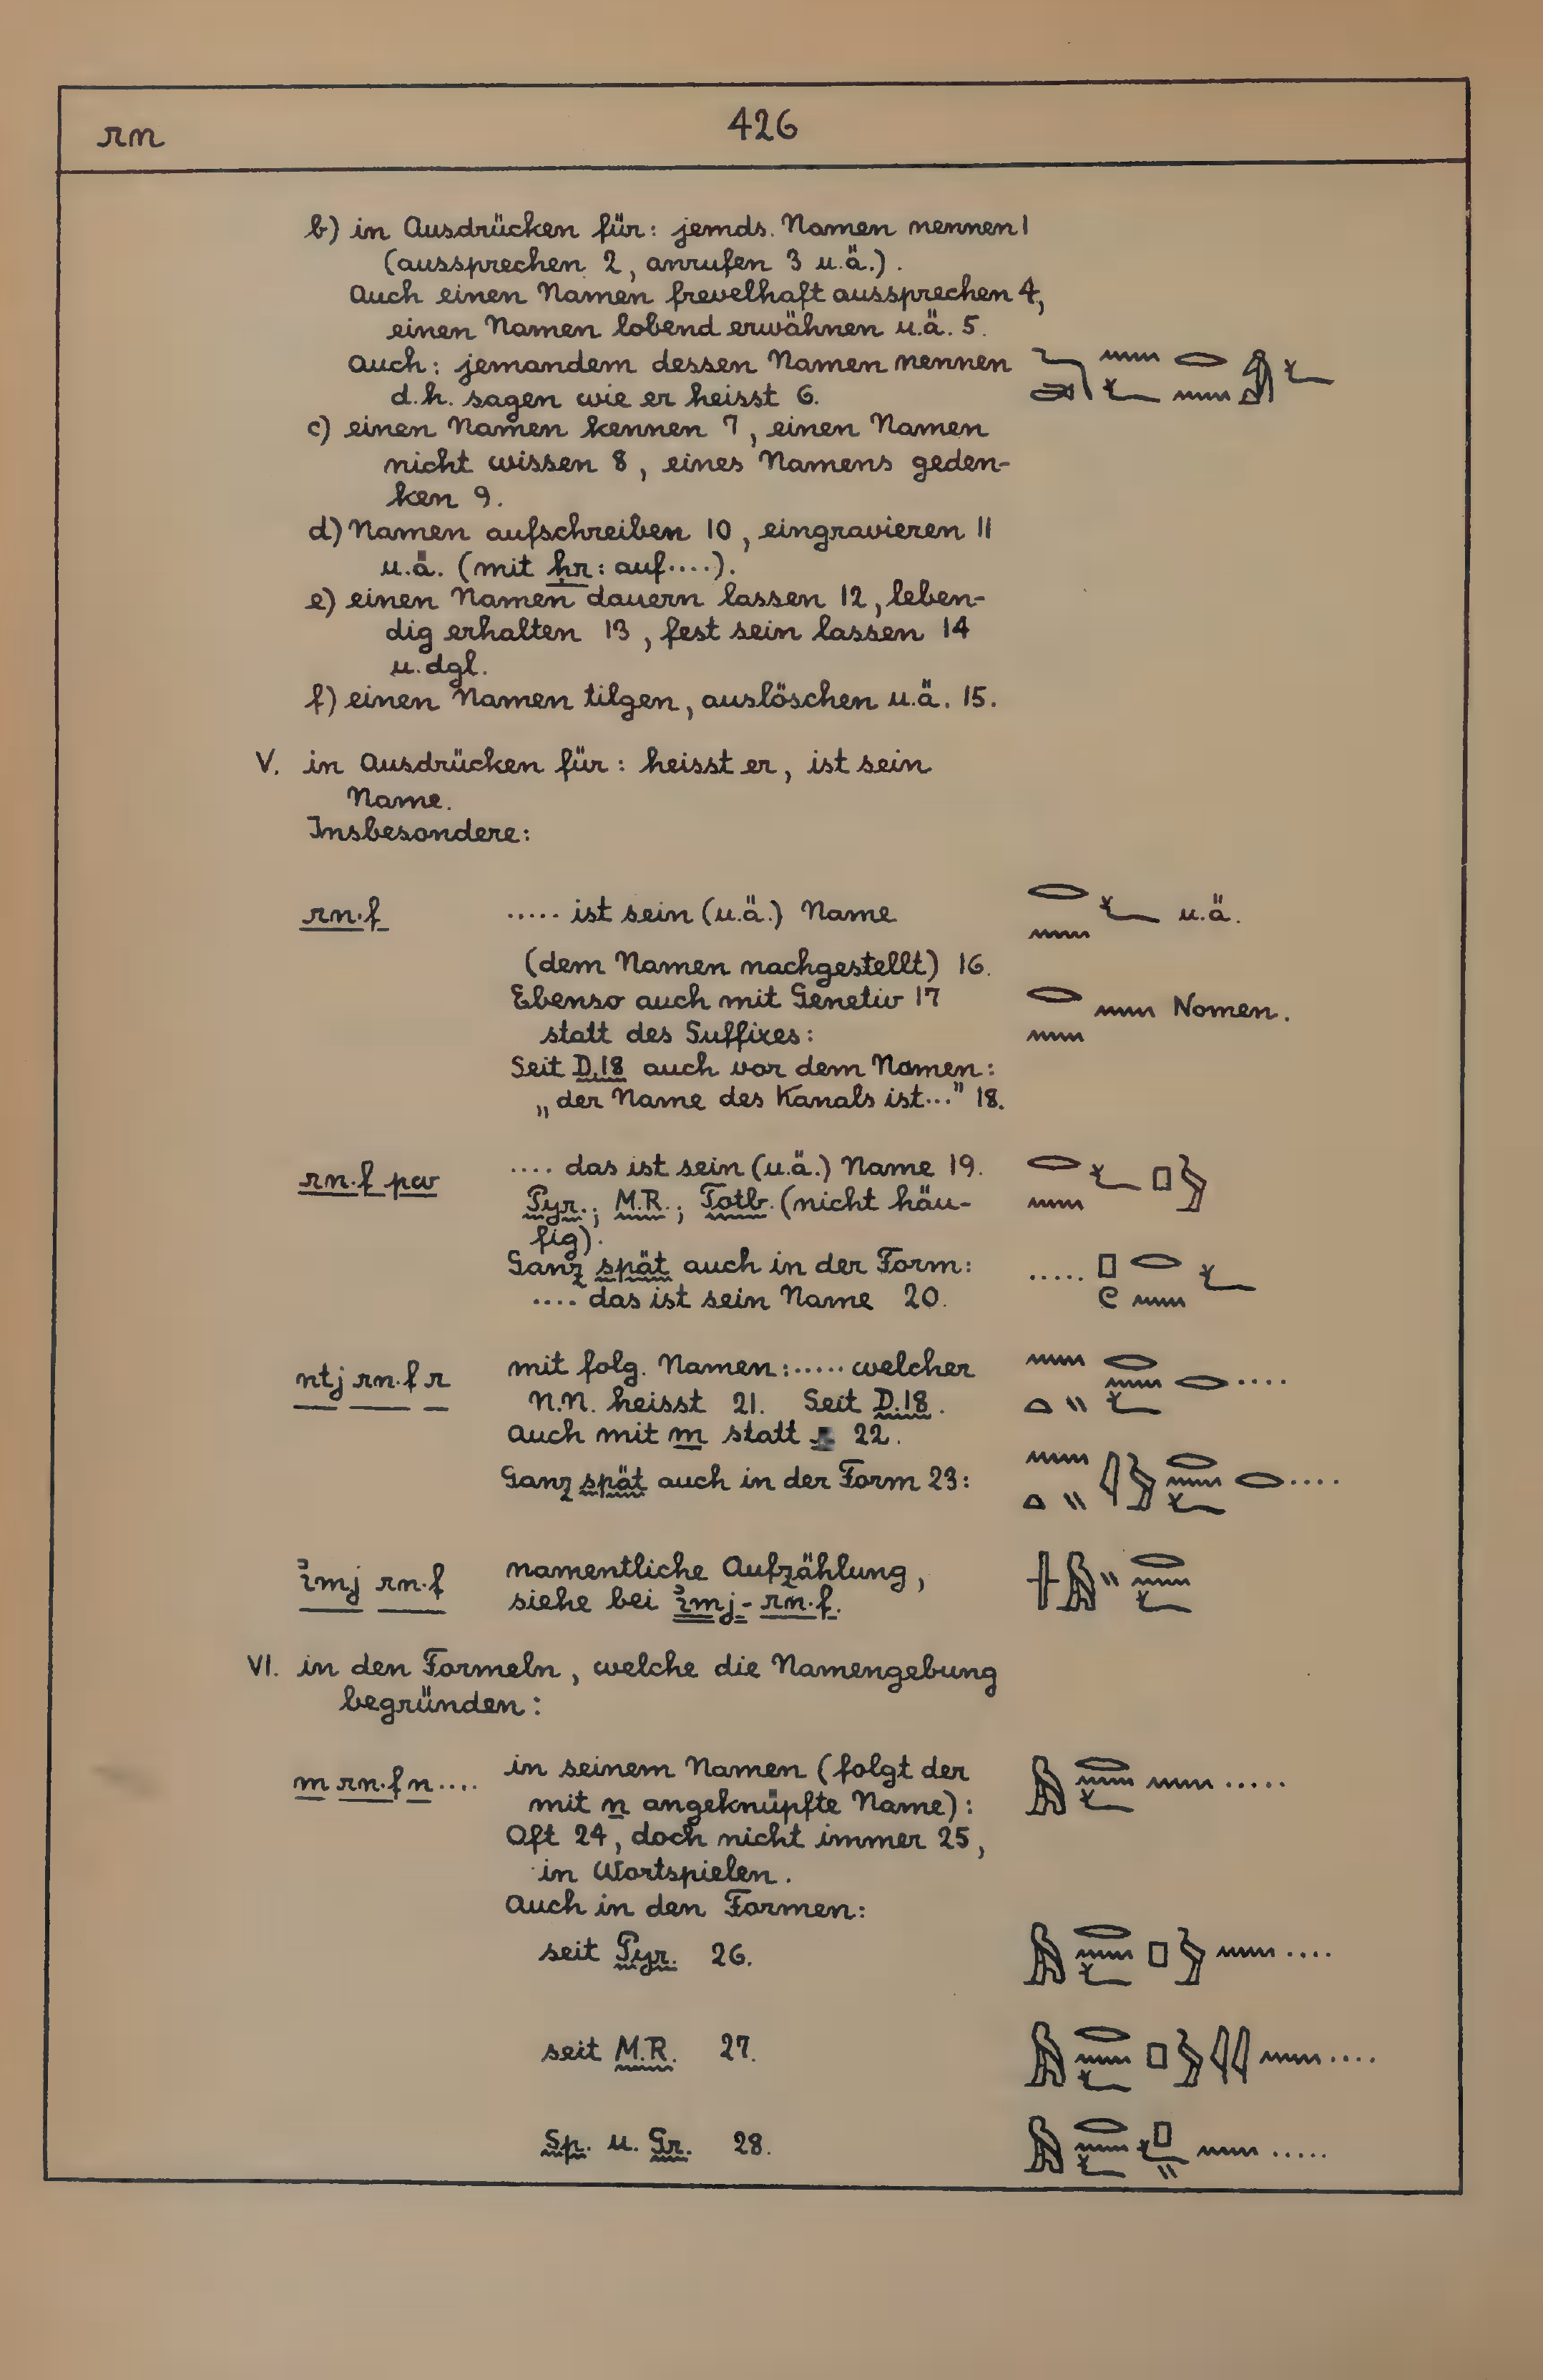 rn
426
b) in Ausdrücken für: jemds. Namen nennen 1
(aussprechen 2, anrufen 3 u.ä.).
Auch einen Namen frevelhaft aussprechen 4,
einen Namen lobend erwähnen u.ä. 5.
Auch: jemandem dessen Namen nennen
d.h. sagen wie er heisst 6.
c) einen Namen kennen 7, einen Namen
nicht wissen 8, eines Namens geden-
ken 9.
d) Namen aufschreiben 10, eingravieren 11
u.ä. (mit ḥr: auf....).
e) einen Namen dauern lassen 12, leben-
dig erhalten 13, fest sein lassen 14
u.dgl.
f) einen Namen tilgen, auslöschen u.ä. 15.
V. in Ausdrücken für: heisst er, ist sein
Name.
Insbesondere:
rn·f ..... ist sein (u.ä.) Name 𓂋𓈖𓆑 u.ä.
(dem Namen nachgestellt) 16.
Ebenso auch mit Genetiv 17 𓂋𓈖𓈖 Nomen.
statt des Suffixes:
Seit D.18 auch vor dem Namen:
„der Name des Kanals ist..." 18.
rn·f pw .... das ist sein (u.ä.) Name 19. 𓂋𓈖𓆑𓊪𓅱
Pyr.; M.R.; Totb. (nicht häu-
fig).
Ganz spät auch in der Form: ..... 𓊪𓏲𓂋𓈖𓆑
.... das ist sein Name 20.
ntj rn·f r mit folg. Namen: ..... welcher 𓈖𓏏𓏭𓂋𓈖𓆑𓂋....
N.N. heisst 21. Seit D.18.
Auch mit m statt r 22.
Ganz spät auch in der Form 23: 𓈖𓏏𓏭𓇋𓅱𓂋𓈖𓆑𓂋....
imj rn·f namentliche Aufzählung, 𓏶𓅓𓏭𓂋𓈖𓆑
siehe bei imj-rn·f.
VI. in den Formeln, welche die Namengebung
begründen:
m rn·f n.... in seinem Namen (folgt der 𓅓𓂋𓈖𓆑𓈖.....
mit n angeknüpfte Name):
Oft 24, doch nicht immer 25,
in Wortspielen.
Auch in den Formen:
seit Pyr. 26. 𓅓𓂋𓈖𓆑𓊪𓅱𓈖....
seit M.R. 27. 𓅓𓂋𓈖𓆑𓊪𓅱𓇋𓇋𓈖....
Sp. u. Gr. 28. 𓅓𓂋𓈖𓆑𓊪𓆑𓏭𓈖.....